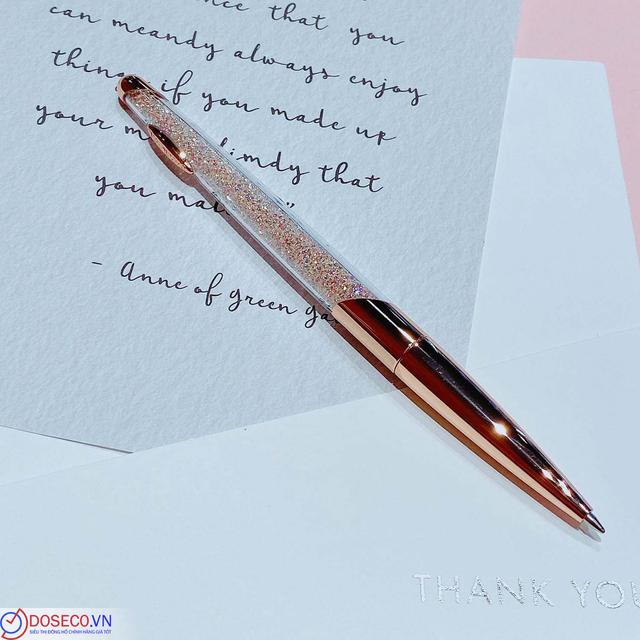 that you
can meandy always enjoy
if you made up
your limdy that
you
- Anne of green
THANK YOU
DOSECO.VN
SIÊU THỊ ĐỒNG HỒ CHÍNH HÃNG GIÁ TỐT